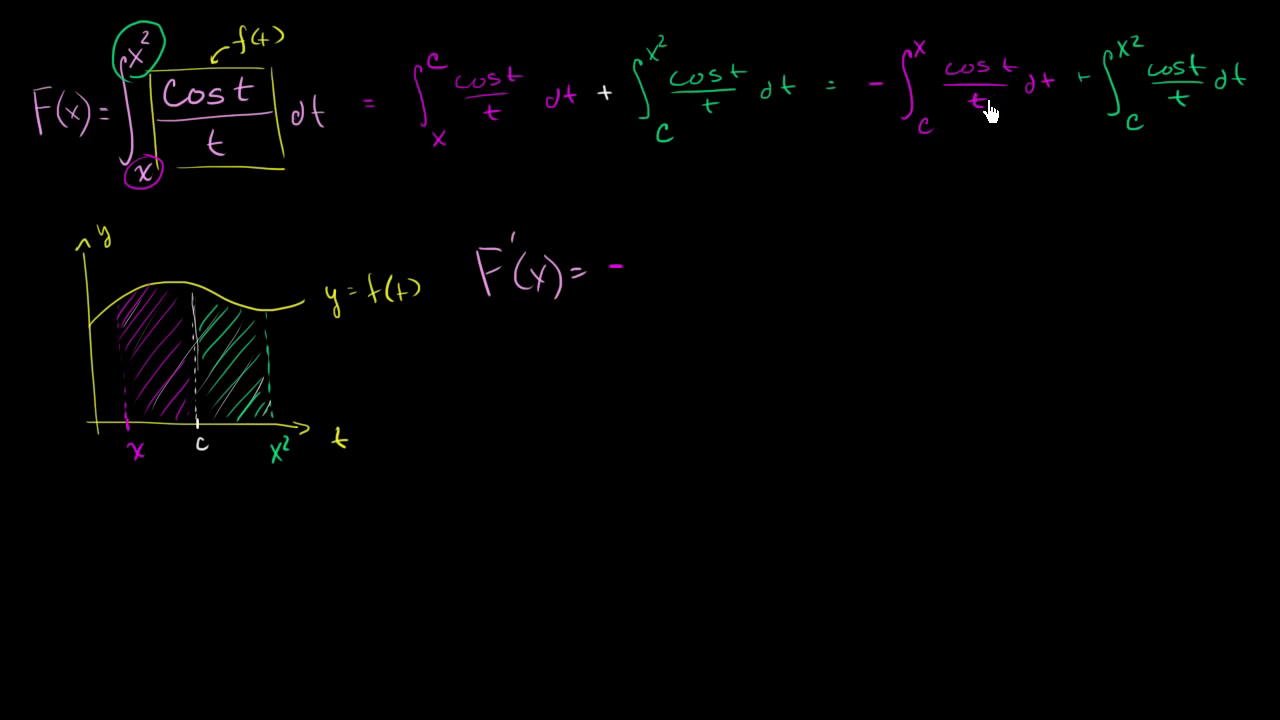 f(t)
F(x) = ∫_x^{x²} cos t / t dt = ∫_x^c cos t / t dt + ∫_c^{x²} cos t / t dt = - ∫_c^x cos t / t dt + ∫_c^{x²} cos t / t dt
y
F'(x) = -
y = f(t)
x c x² t